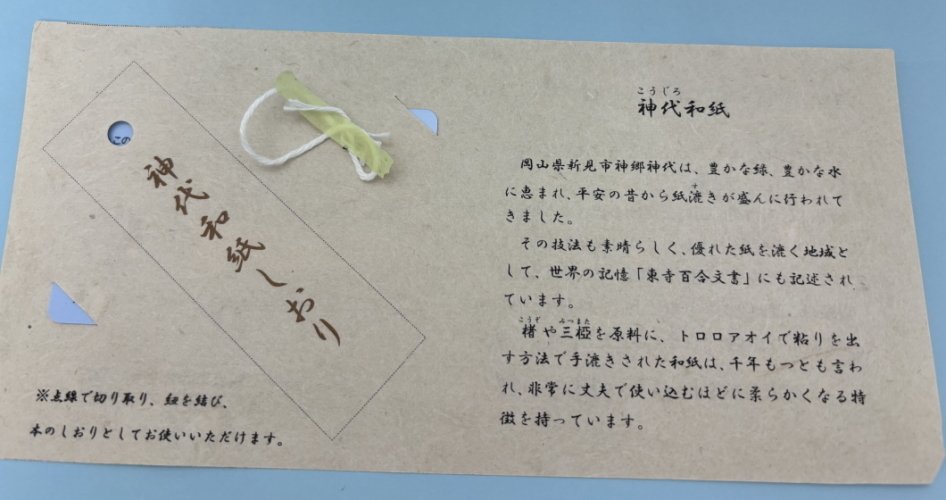 この
神代和紙しおり
※点線で切り取り、紐を結び、
本のしおりとしてお使いいただけます。
こうじろ
神代和紙
岡山県新見市神郷神代は、豊かな緑、豊かな水
に恵まれ、平安の昔から紙漉きが盛んに行われて
す
きました。
その技法も素晴らしく、優れた紙を漉く地域と
して、世界の記憶「東寺百合文書」にも記述され
ています。
こうぞ みつまた
楮や三椏を原料に、トロロアオイで粘りを出
す方法で手漉きされた和紙は、千年もつとも言わ
れ、非常に丈夫で使い込むほどに柔らかくなる特
徴を持っています。